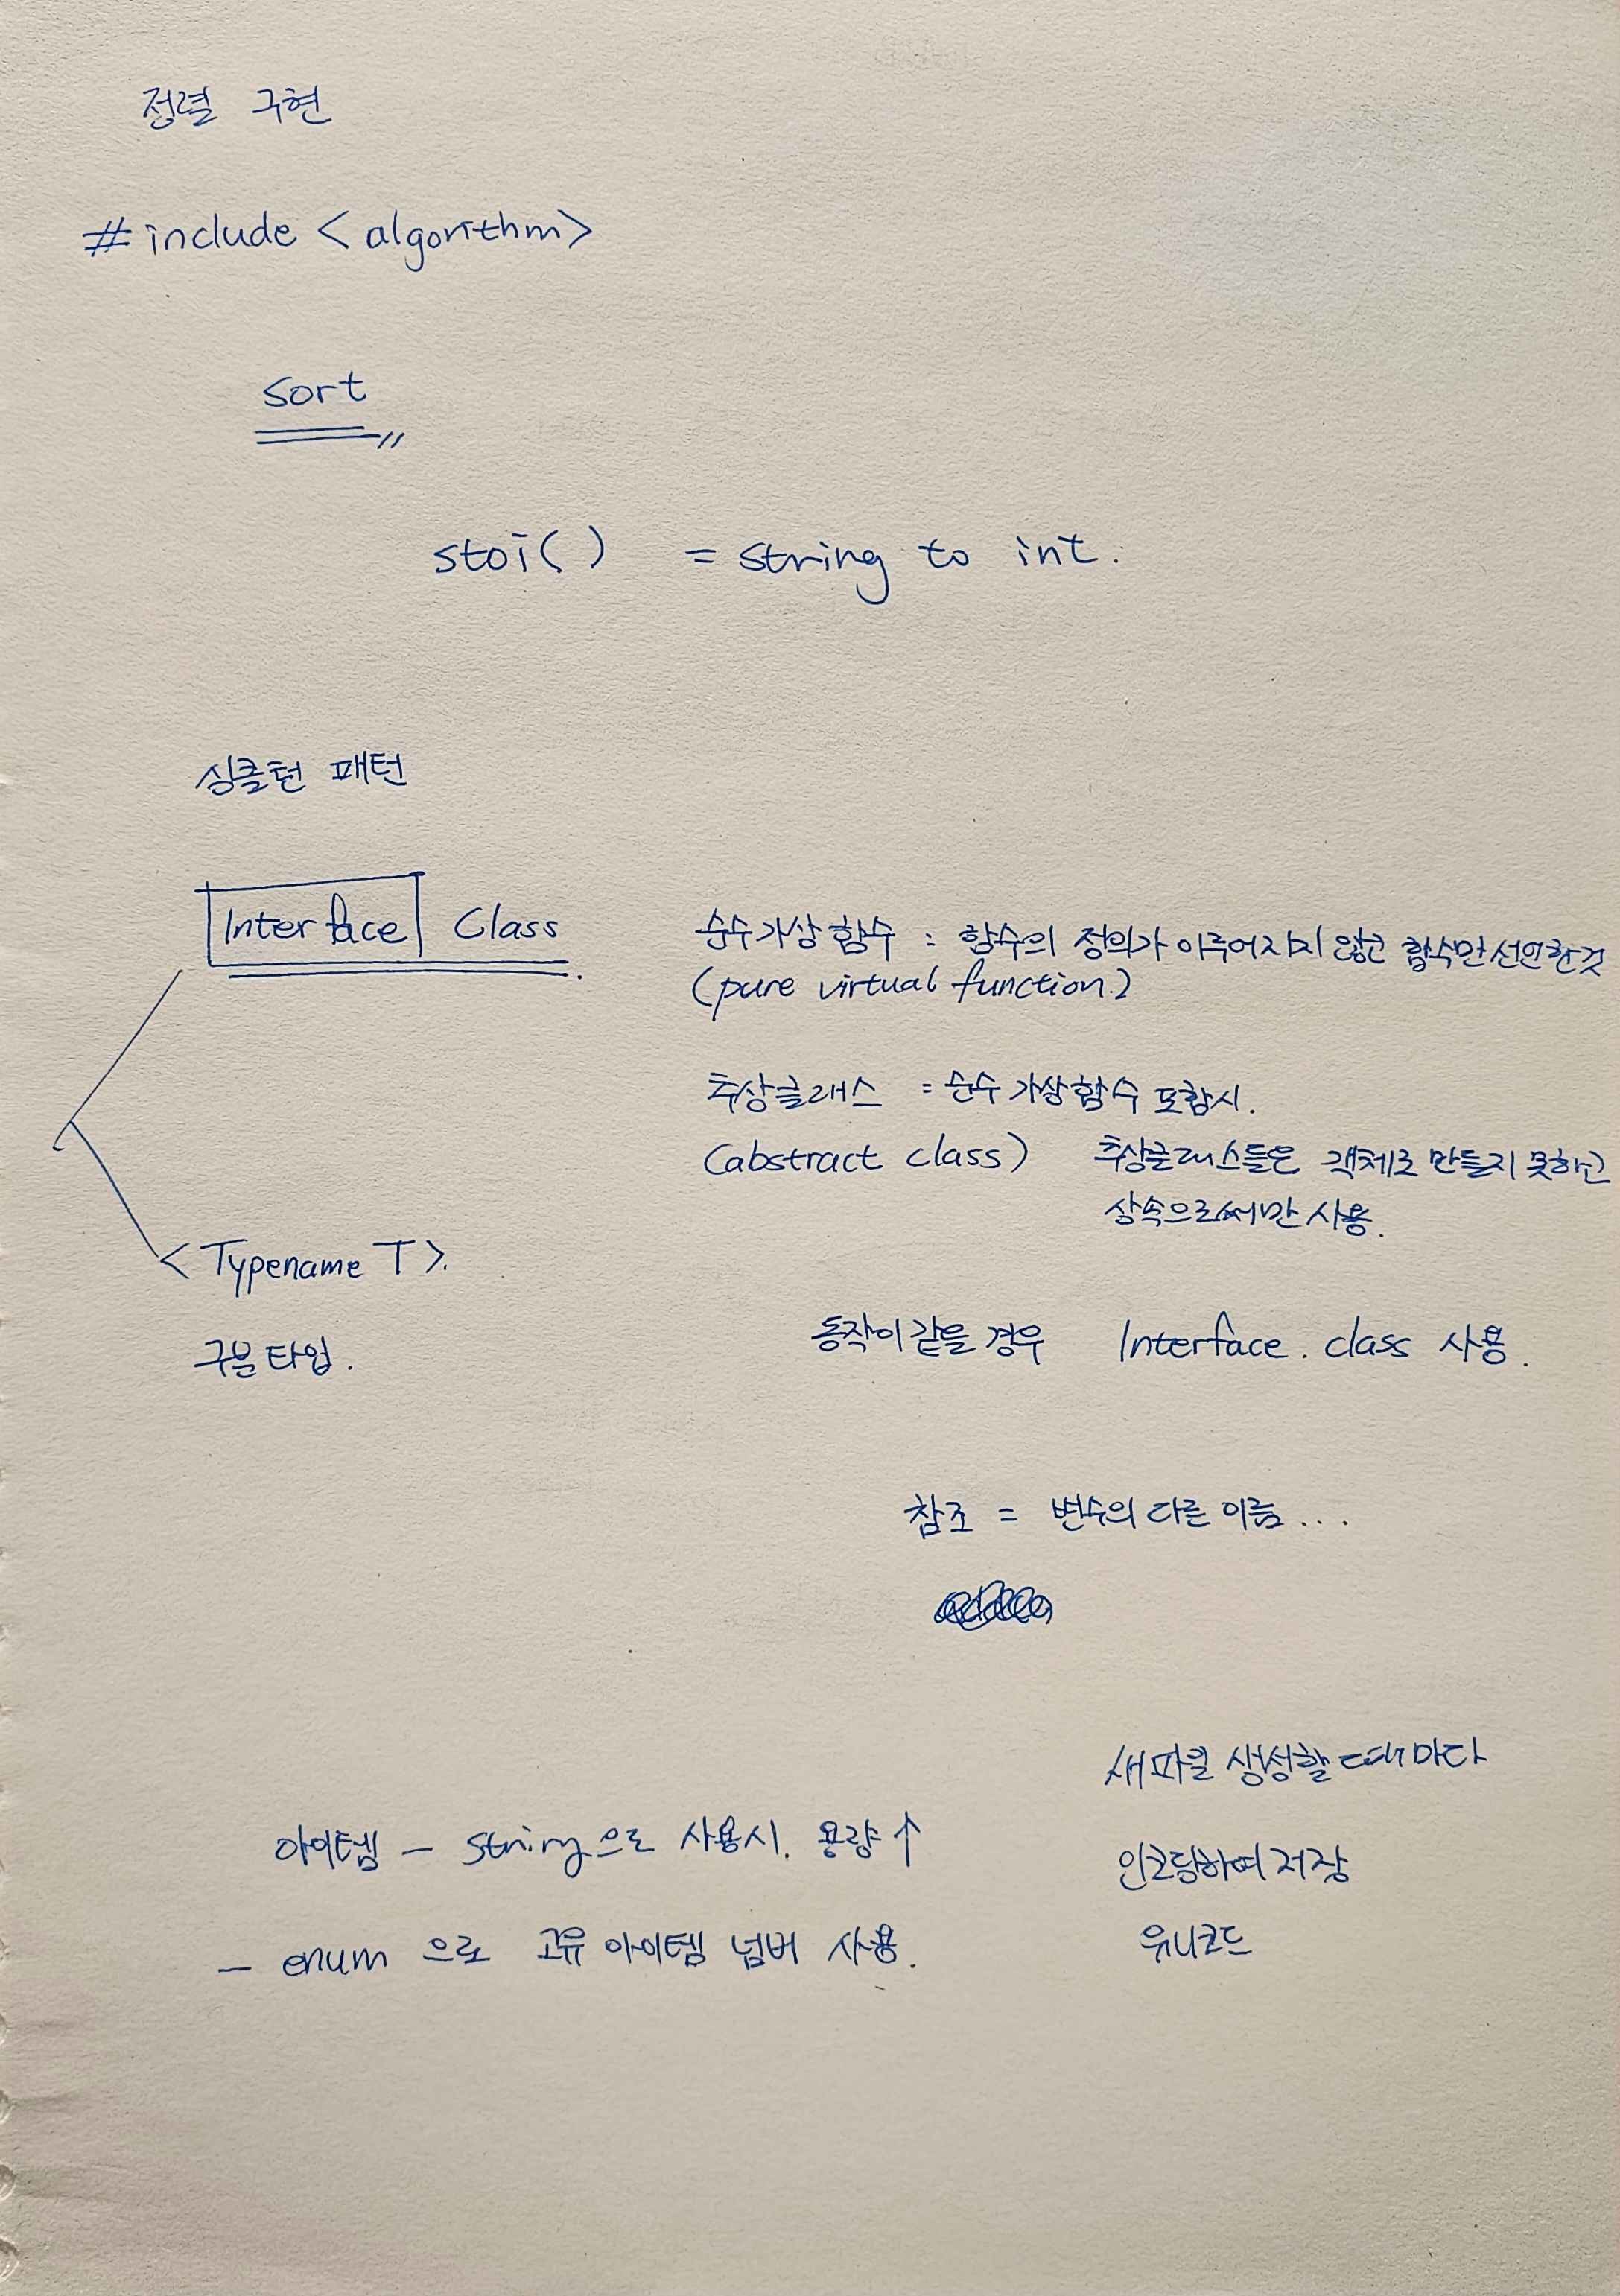 정렬 구현
#include <algorithm>
sort
stoi() = string to int.
싱글턴 패턴
Interface Class.
순수가상함수 : 함수의 정의가 이루어지지 않고 함수만 선언한것
(pure virtual function.)
추상클래스 = 순수 가상함수 포함시.
(abstract class) 추상클래스들은 객체로 만들지 못하고
상속으로써만 사용.
<Typename T>.
구분타입.
동작이 같을 경우 Interface. class 사용.
참조 = 변수의 다른 이름...
새파일 생성할때마다
인코딩하여 저장
유니코드
아이템 - string으로 사용시. 용량↑
- enum 으로 고유 아이템 넘버 사용.